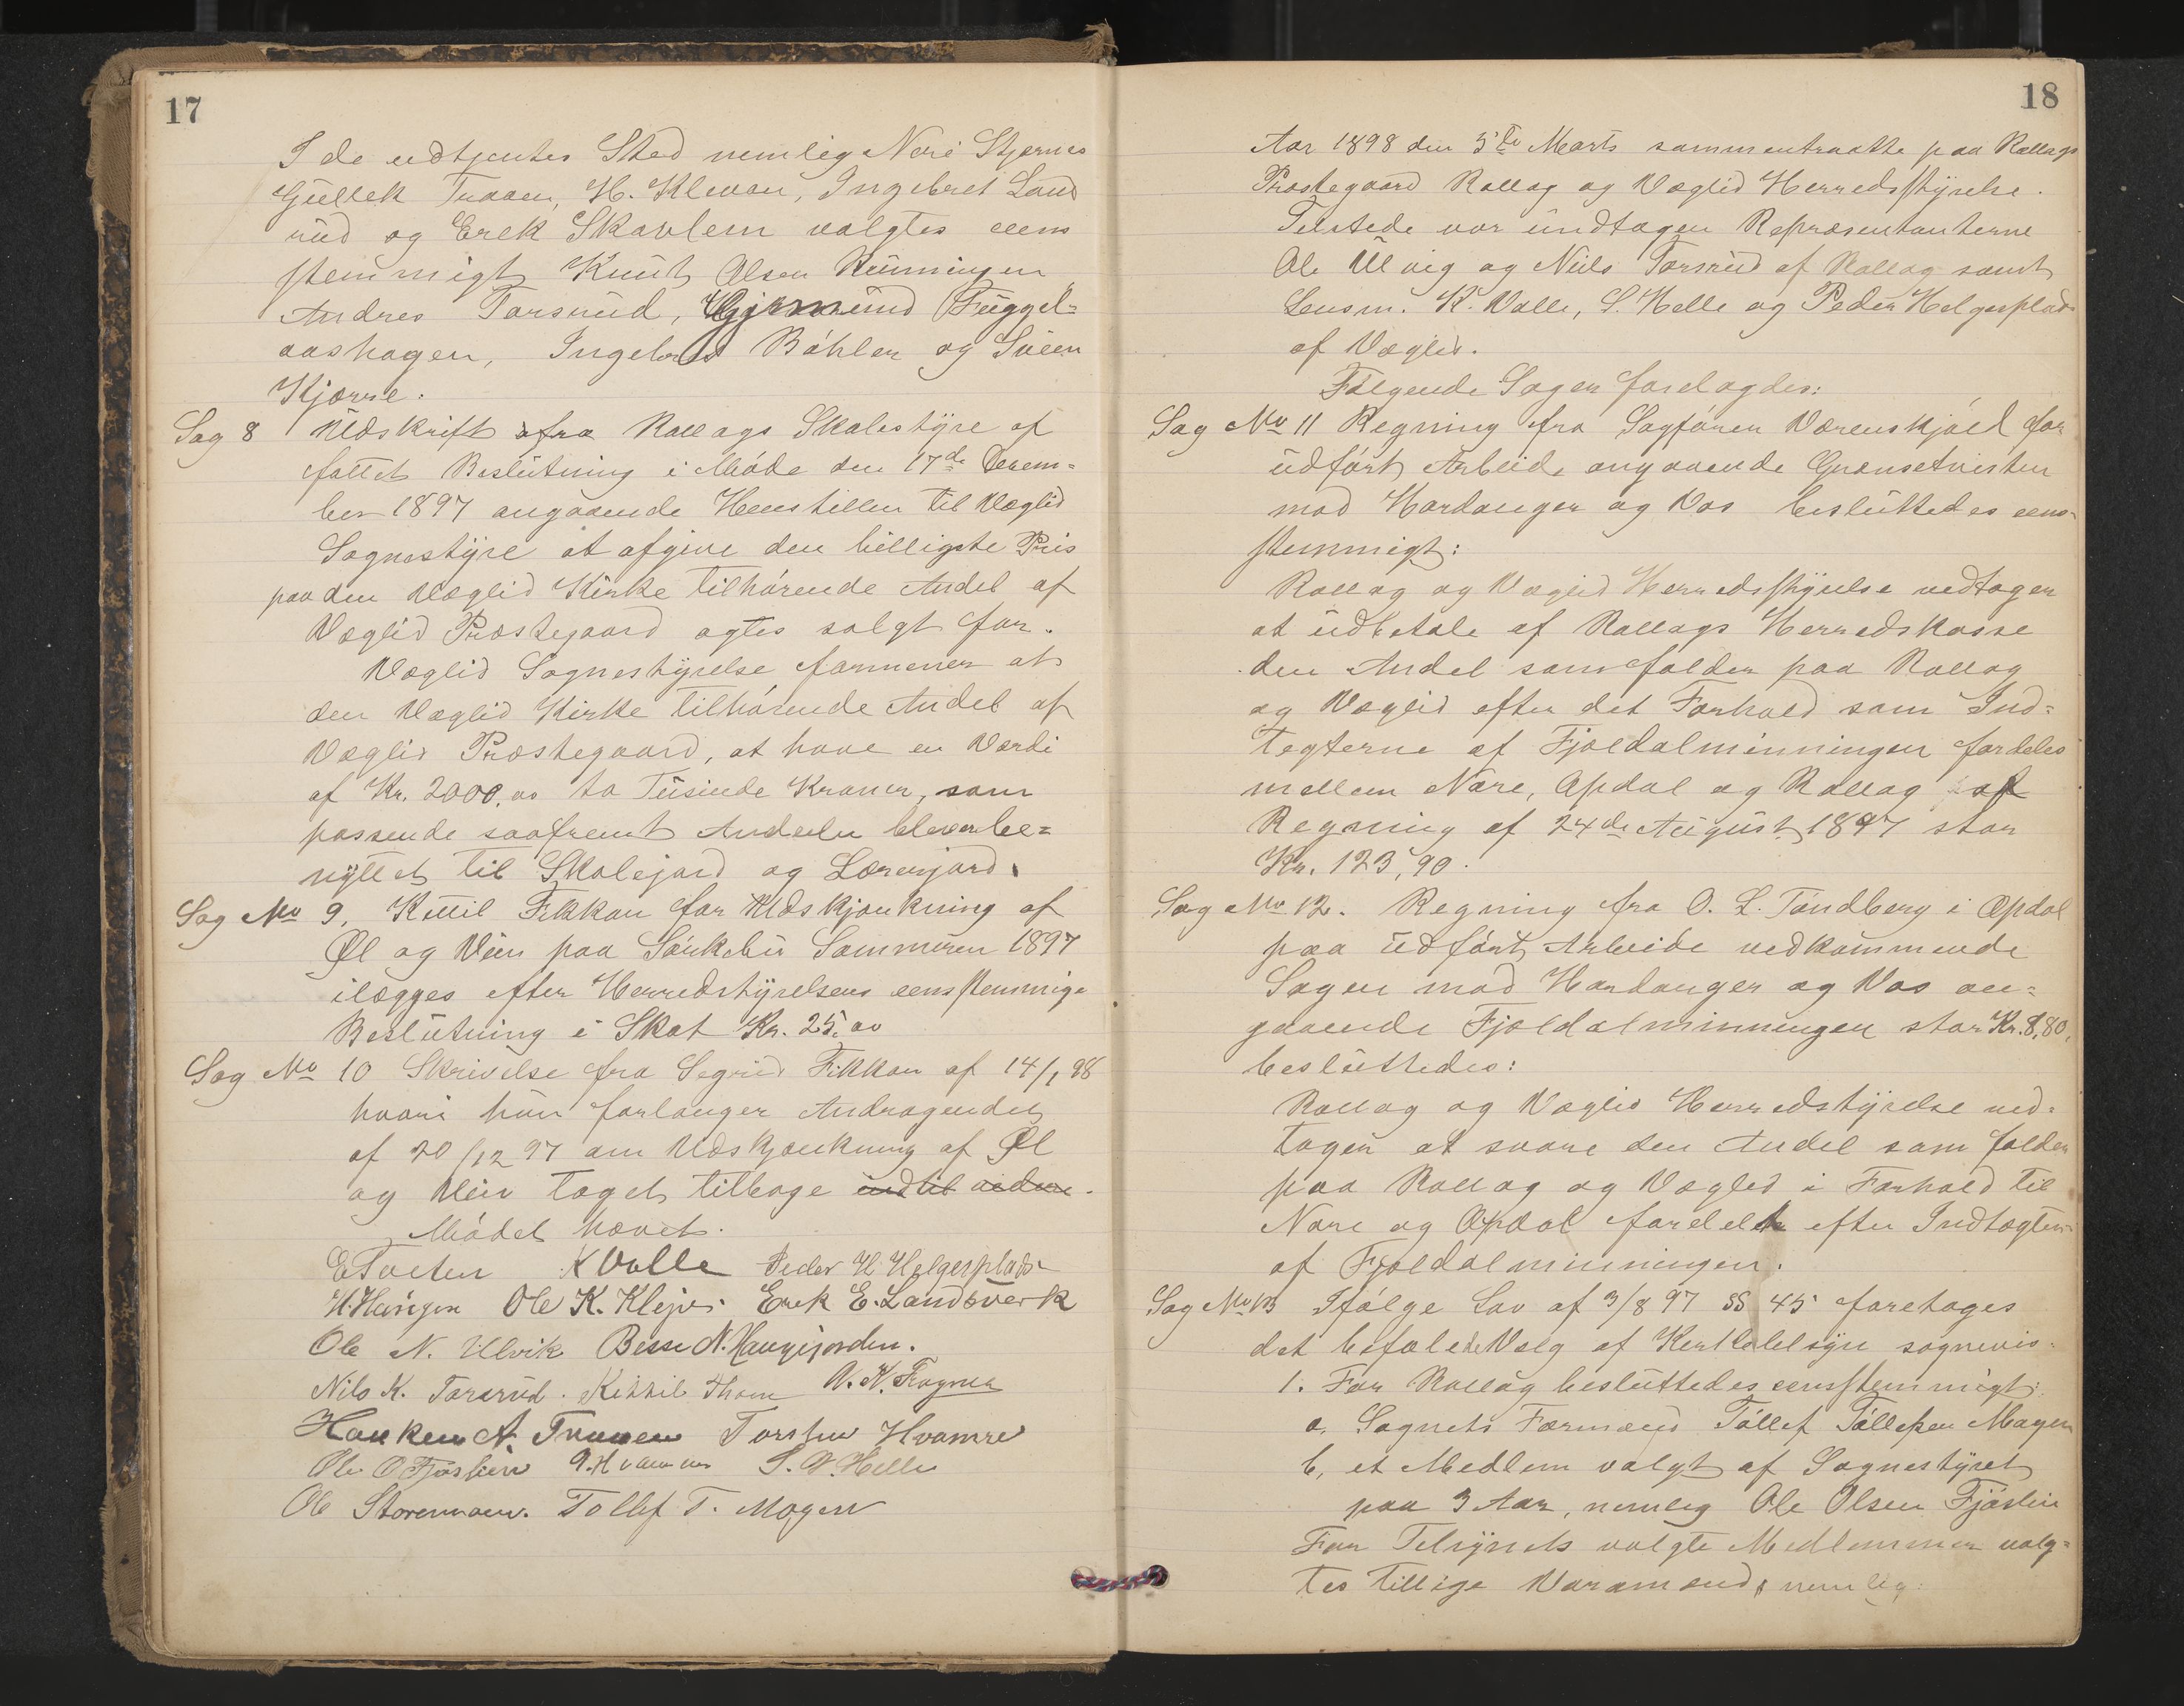 17
I de udtjentes Sted nemlig Neri Stjernes
Gullek Traaen, H. Klevan, Ingebret Land
rud og Erek Skavlem valgtes eens
stemmigt Knut Olsen Rünningen
Andres Torsrud, Gjermund Fuggel=
aashagen, Ingebret Bøhler og Svein
Kjørre.
Sag 8 Udskrift afra Rollags Skolestyre af
fattet Beslutning i Møde den 17de Decem=
ber 1897 angaaende Henstillen til Væglid
Sognestyre at afgive den billigste Pris
paa den Væglid Kirke tilhørende Andel af
Væglid Præstegaard agtes solgt for.
Væglid Sognestyrelse formener at
den Væglid Kirke tilhørende Andel af
Væglid Præstegaard, at have en Værdi
af Kr. 2000.00 to Tusinde Kroner, som
passende saafremt Andelen bleven be=
nyttet til Skolejord og Lærerjord.
Sag No 9, Kittil Fikkan for Udskjænkning af
Øl og Vin paa Sønkebu Sommeren 1897
ilægges efter Herredstyrelsens eensstemmige
Beslutning i Skat Kr. 25,00
Sag No 10 Skrivelse fra Segrid Fikkan af 14/1 98
hvori hun forlanger Andragendet
af 20/12 97 om Udskjænkning af Øl
og Vin taget tilbage indtil videre.
Mødet hævet.
E Traaen K Valle Peder H. Helgesplads
H. Haugen Ole K. Klejvi Erek E. Landsverk
Ole N. Ulvik Besse N. Haugejorden.
Nils K. Torsrud. Kittil Thom N. N. Fragner
Haaken A. Traaen Torsten Hvamre
Ole O Fjøslien O. Hvamre S. N. Helle
Ole Storemoen. Tollef T. Mogen
18
Aar 1898 den 5te Marts sammentraatte paa Rollags
Præstegaard Rollag og Væglid Herredsstyrelse.
Tilstede var undtagen Repræsentanterne
Ole Ulvig og Niels Torsrud af Rollag samt
Lensm. K. Valle, S. Helle og Peder Helgesplads
af Væglid.
Følgende Sager forelagdes:
Sag No 11 Regning fra Sagfører Værenskjold for
udført Arbeide angaaende Grænsetvisten
mod Hardanger og Vos besluttedes eens=
stemmigt:
Rollag og Væglid Herredsstyrelse vedtager
at udbetale af Rollags Herredskasse
den Andel som falder paa Rollag
og Væglid efter det Forhold som Ind=
tegterne af Fjeldalminningen fordeles
mellem Nore, Opdal og Rollag af
Regning af 24de August 1897 stor
Kr. 123,90.
Sag No 12. Regning fra O. L. Tøndberg i Opdal
paa udført Arbeide vedkommende
Sagen mod Hardanger og Vos an=
gaaende Fjeldalminningen stor Kr. 8,80,
besluttedes:
Rollag og Væglid Herredstyrelse ved=
tager at svare den Andel som falder
paa Rollag og Væglid i Forhold til
Nore og Opdal fordelt efter Indtægten
af Fjeldalminningen.
Sag No 13 Ifølge Lov af 3/8 97 §§ 45 foretoges
det befalede Valg af Kirketilsyn sognevis.
1. For Rollag besluttedes eensstemmigt:
a. Sognets Formand Tollef Tollefsen Mogen
b, et Medlem valgt af Sognestyret
paa 3 Aar, nemlig Ole Olsen Fjøslien
For Tilsynets valgte Medlemmer valg=
tes tillige Varamænd, nemlig: